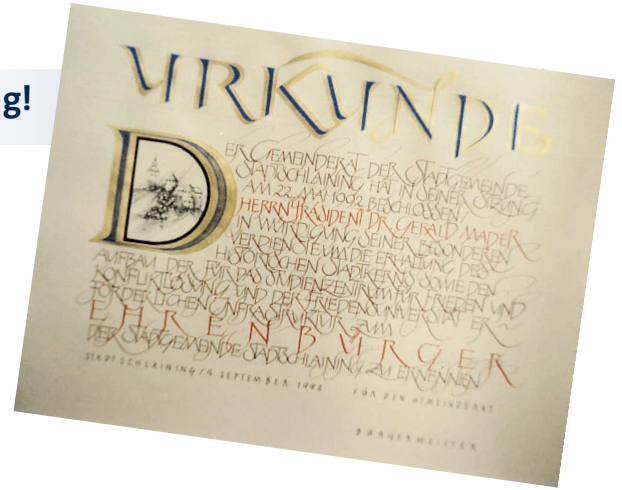 g!
URKUNDE
DER GEMEINDERAT DER STADTGEMEINDE
STADTSCHLAINING HAT IN SEINER SITZUNG
AM 22. MAI 1992 BESCHLOSSEN
HERRN PRÄSIDENT DR. GERALD MADER
IN WÜRDIGUNG SEINER BESONDEREN
VERDIENSTE UM DIE ERHALTUNG DES
HISTORISCHEN STADTKERNS SOWIE DEN
AUFBAU DER FÜR DAS STUDIENZENTRUM FÜR FRIEDEN UND
KONFLIKTLÖSUNG UND DER FRIEDENSUNIVERSITÄT ER-
FORDERLICHEN INFRASTRUKTUR ZUM
EHRENBÜRGER
DER STADTGEMEINDE STADTSCHLAINING ZU ERNENNEN
STADTSCHLAINING, SEPTEMBER 1992
FÜR DEN GEMEINDERAT
BÜRGERMEISTER